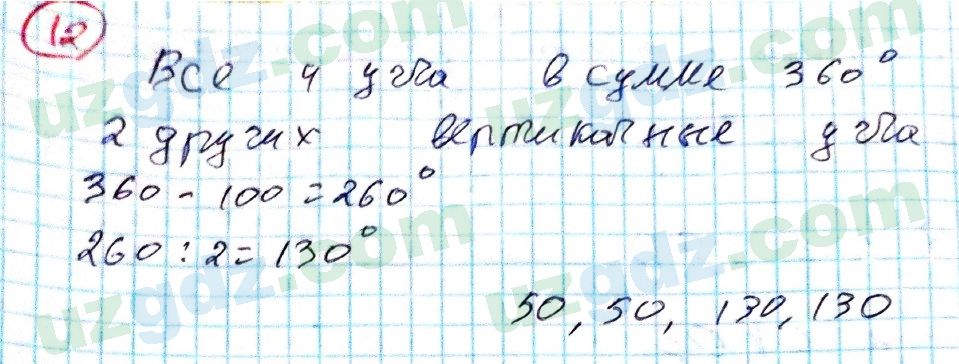 12
Все 4 угла в сумме 360°
2 других вертикальные угла
360 - 100 = 260°
260 : 2 = 130°
50, 50, 130, 130
uzgdz.com
uzgdz.com
uzgdz.com
uzgdz.com